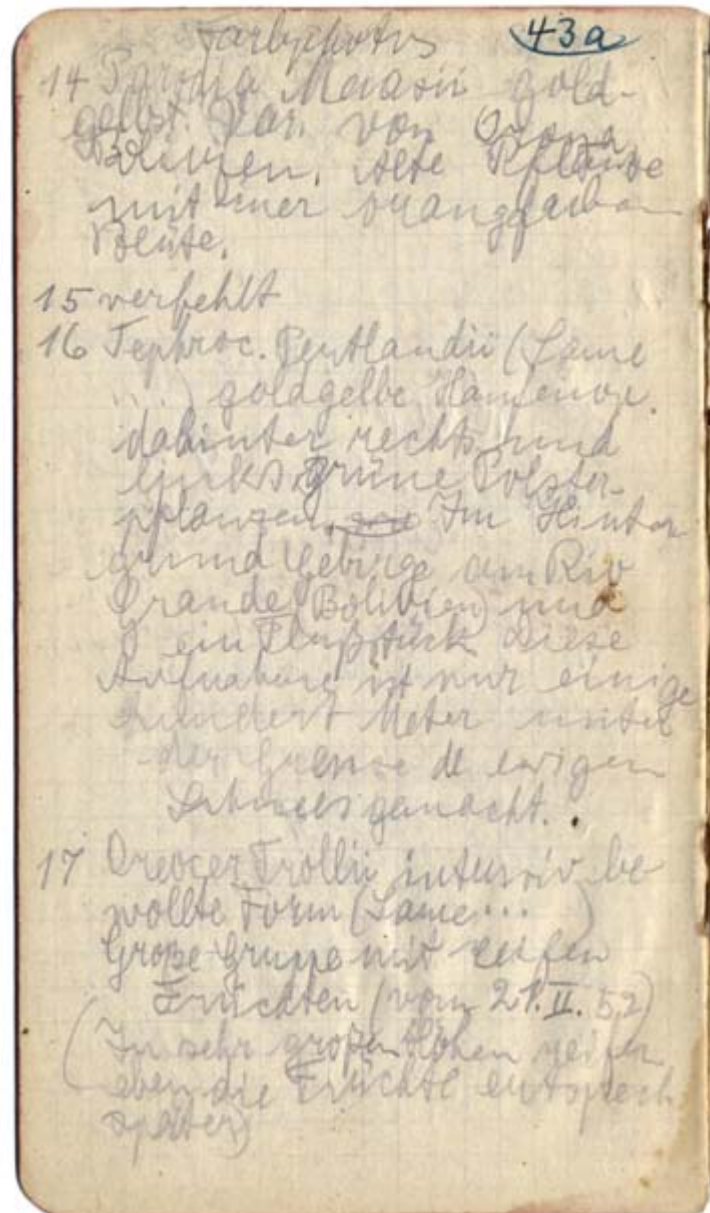 Farbphotos 43a
14 Parodia Maassii gold-
gelbst. Var. von
Bolivien. Alte Pflanze
mit einer orangefarben
Blüte.
15 verfehlt
16 Tephroc. Pentlandii (Same
...) goldgelbe
dahinter rechts und
links grüne Polster-
pflanzen. Im Hinter
grund Gebirge am Rio
Grande (Bolivien) und
ein Flußstück Diese
Aufnahme ist nur einige
hundert Meter unter
der Grenze de ewigen
Schnees gemacht.
17 Oreocer Trollii intensiv be
wollte Form (Same ... )
Große Gruppe mit reifen
Früchten (vom 21. II. 52)
(In sehr großen Höhen reifen
eben die Früchte entsprech
später)